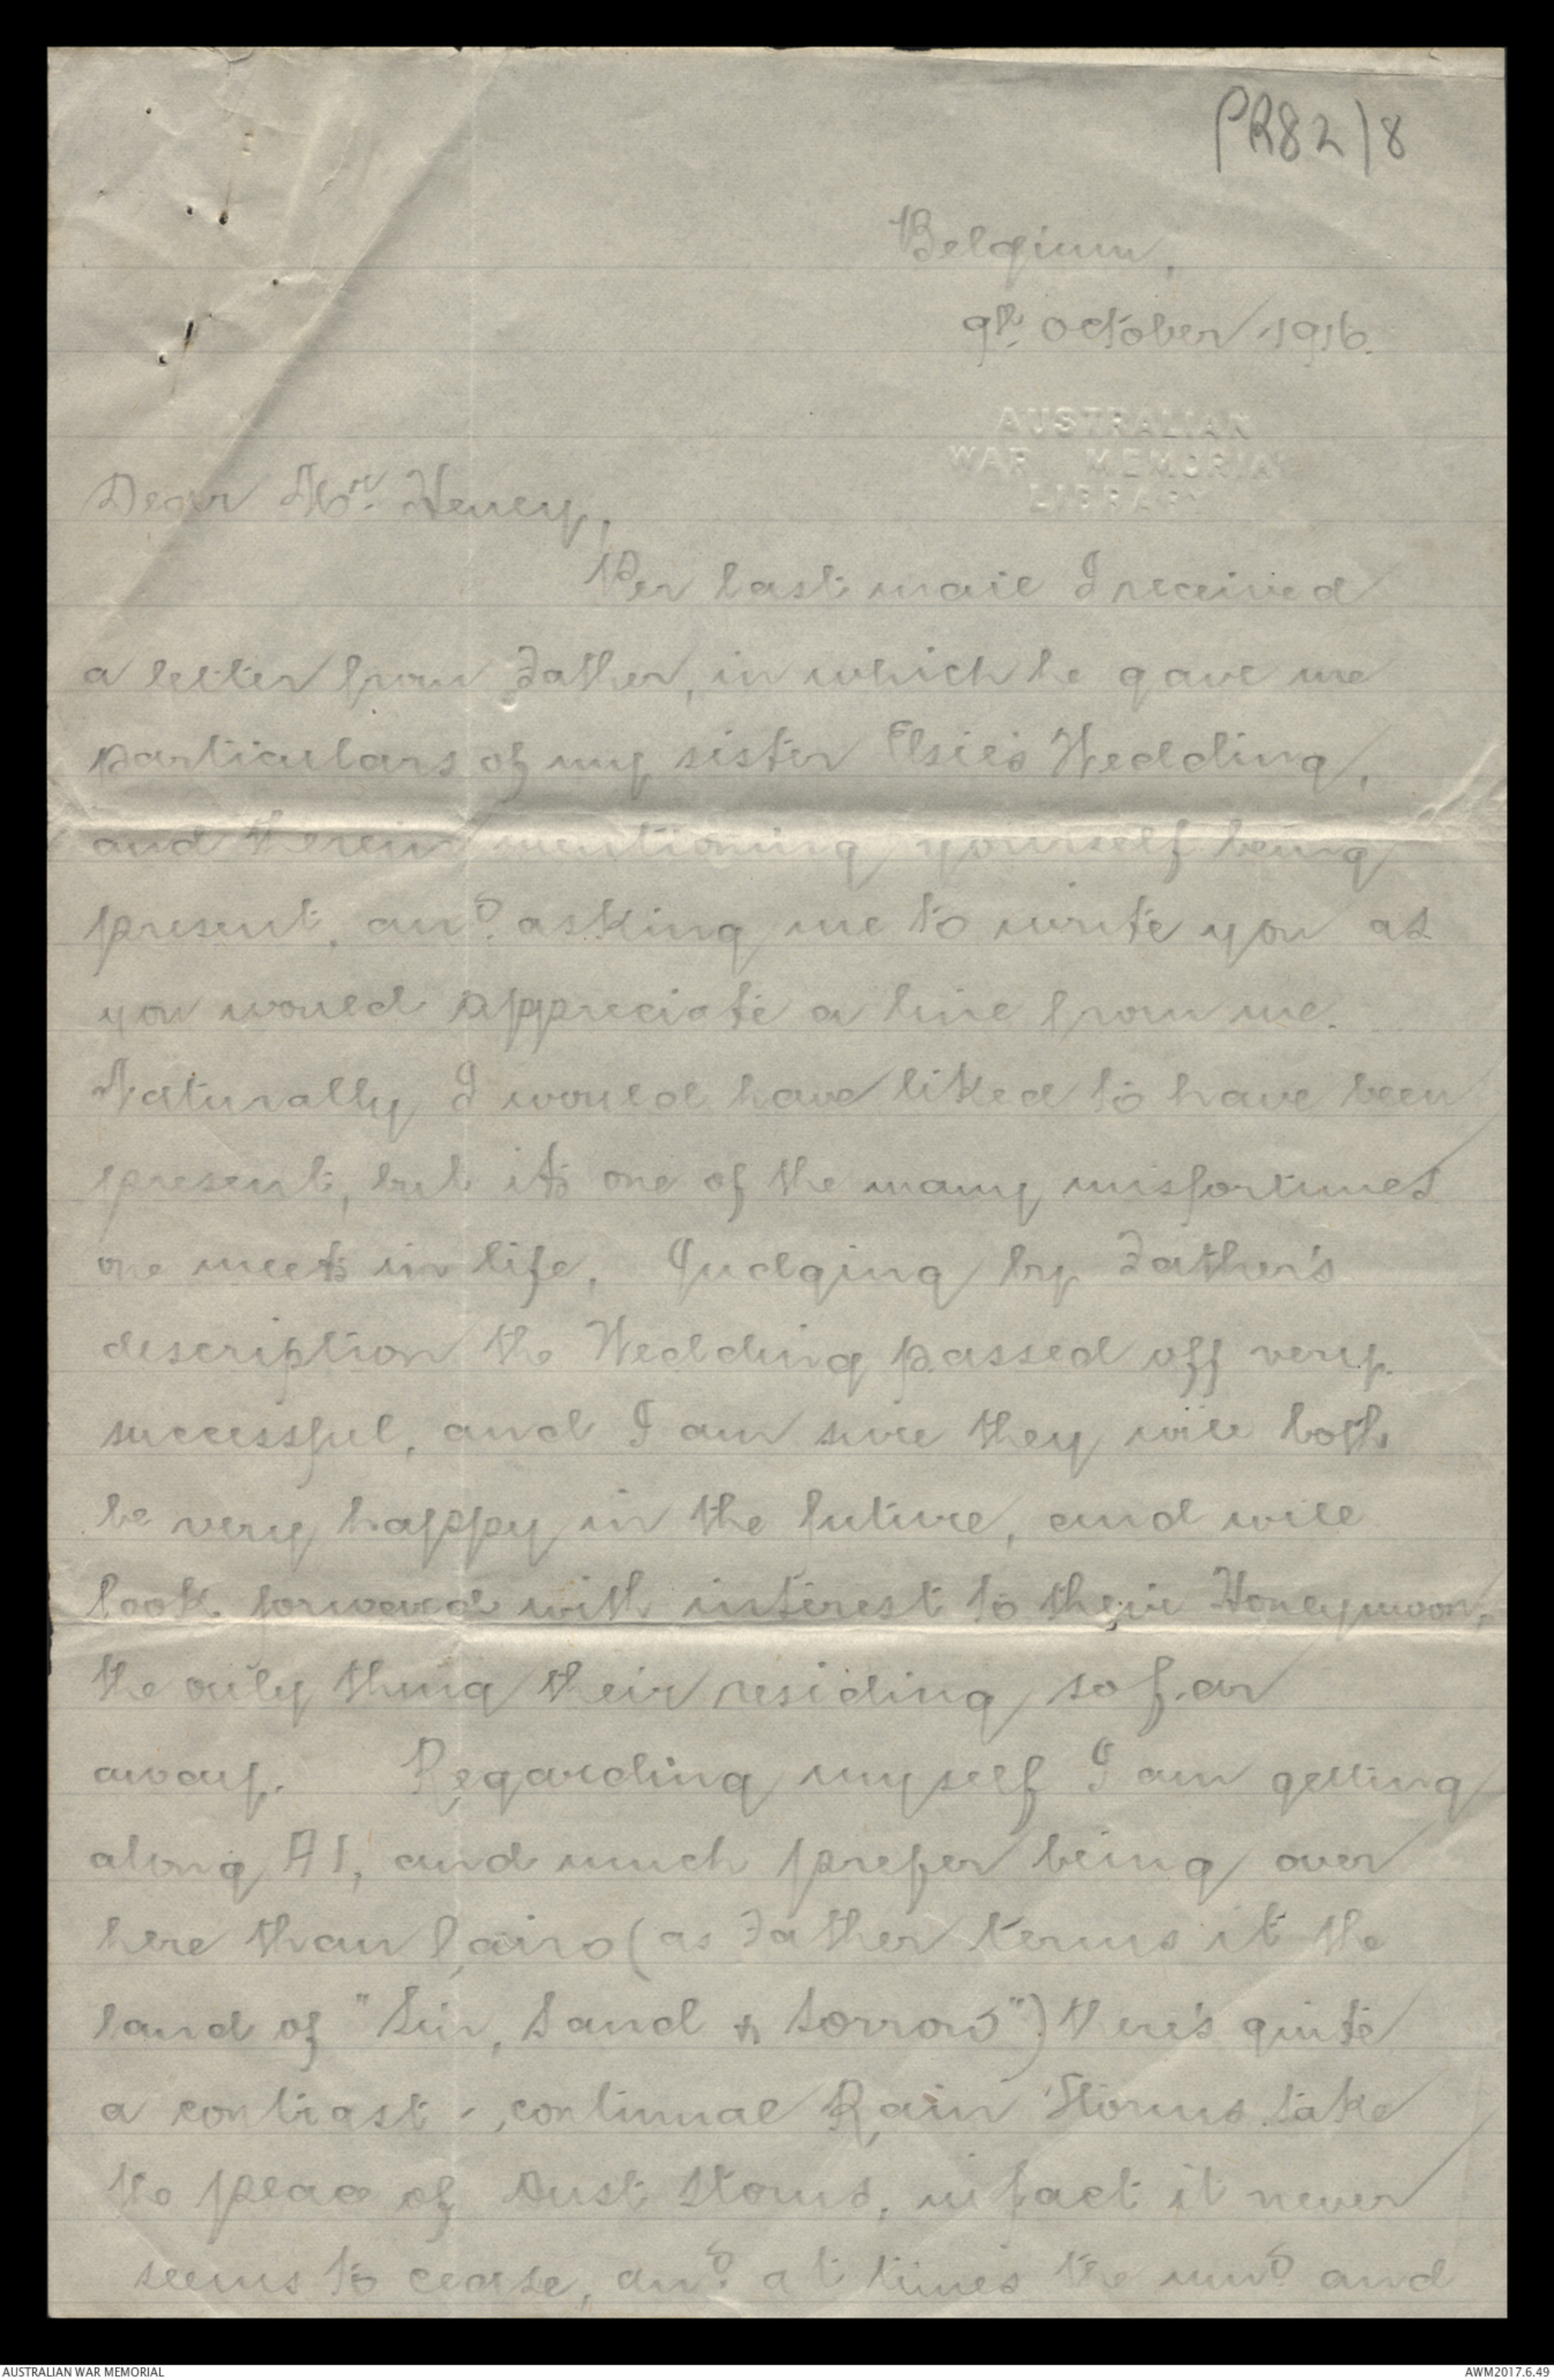 PR82/8
Belgium,
9th. October 1916.
AUSTRALIAN
WAR MEMORIAL
LIBRARY
Dear Mr.
Per last mail I received
a letter from Father, in which he gave me
particulars of my sister Elsie's Wedding,
and therein mentioning yourself being
present, and. asking me to write you as
you would appreciate a line from me.
Naturally I would have liked to have been
present, but its one of the many misfortunes
one meets in life. Judging by Father's
description the Wedding passed off very
successful, and I am sure they will both
be very happy in the future, and will
look forward with interest to their Honeymoon,
the only thing their residing so far
away. Regarding myself I am getting
along A1, and much prefer being over
here than Cairo (as Father terms it the
land of "Sin, Sand & Sorrow") there's quite
a contrast -, continual Rain Storms take
the place of Dust Storms, in fact it never
seems to cease, and. at times the mud and
AUSTRALIAN WAR MEMORIAL
AWM2017.6.49